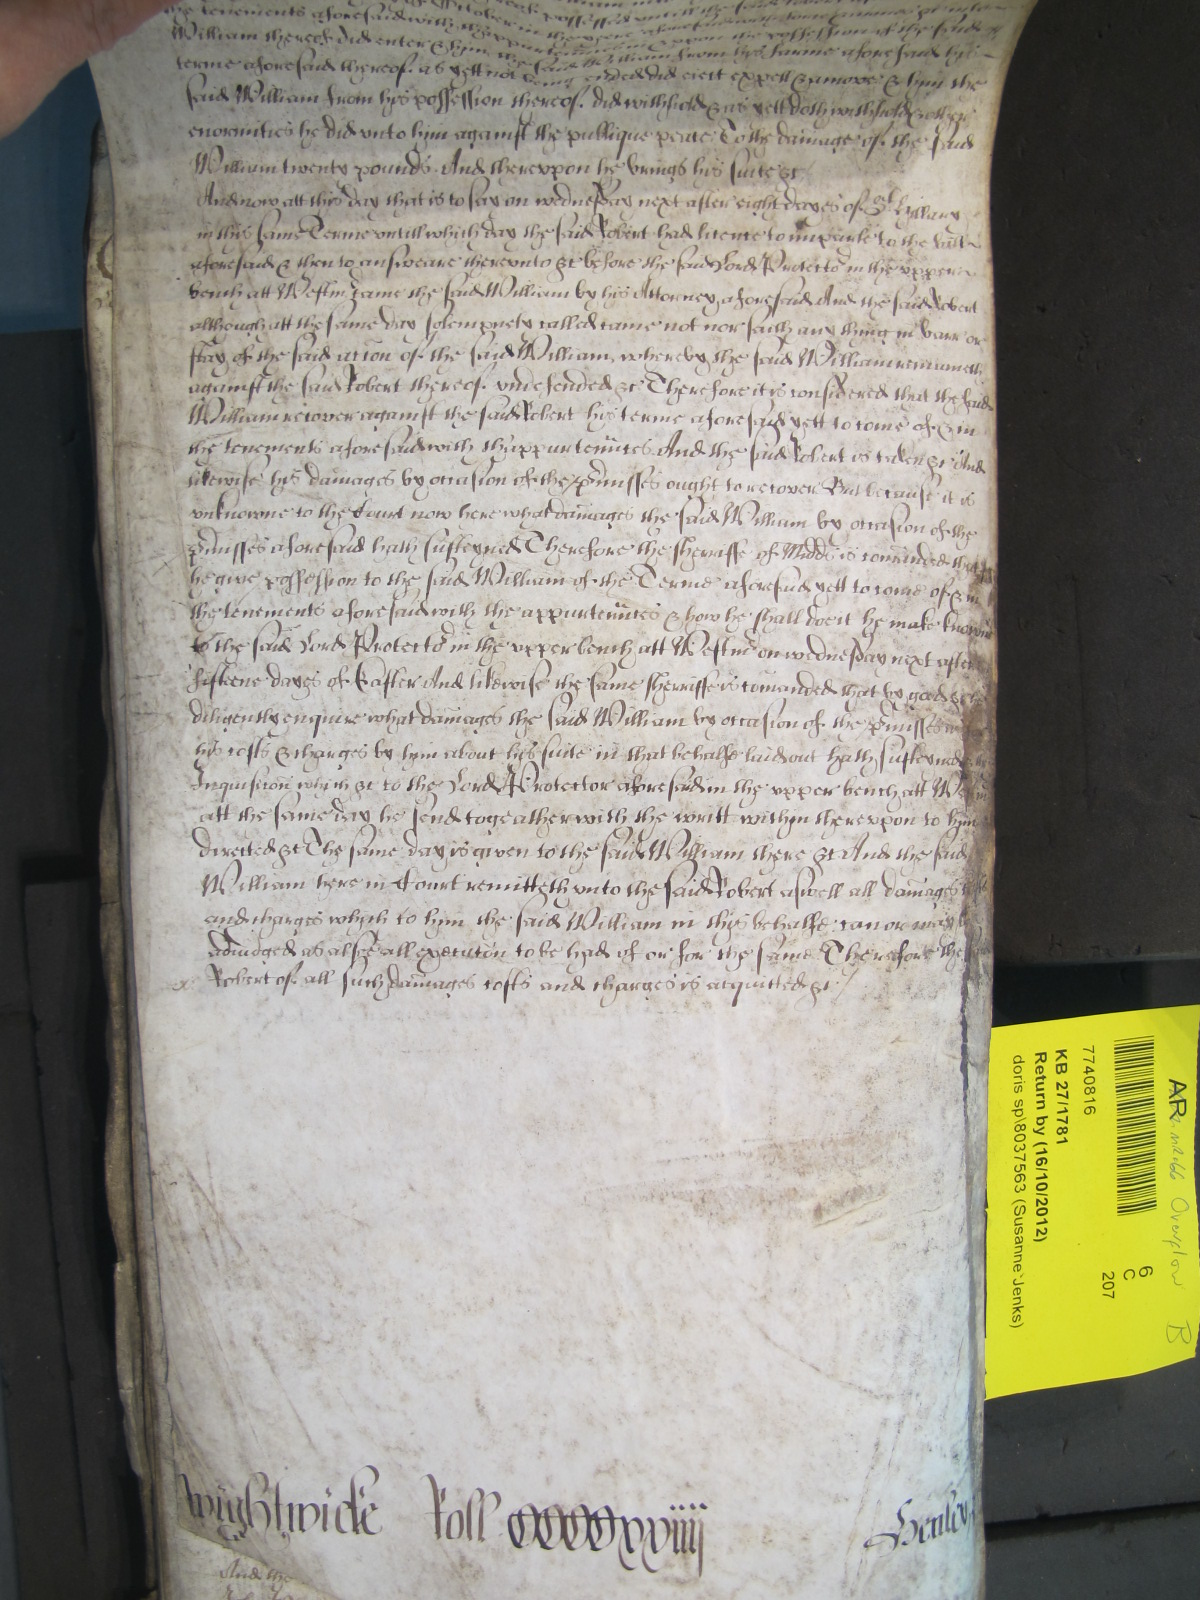 the tenements aforesaid with thappurtenñces in & vpon the possession of the said
William thereof did enter & him the said William from his farme aforesaid his
terme aforesaid thereof as yett not being ended did eiect expell & amove & him the
said William from his possession thereof did withhold & as yett doth withhold & other
enormities he did vnto him against the publique peace To the damage of the said
William twenty pounds And therevpon he brings his suite &c
And now att this day that is to say on wednesday next after eight dayes of St Hillary
in this same Terme vntill which day the said Robert had licence to imparle to the bill
aforesaid & then to answeare therevnto &c before the said Lord Protector in the vpper
bench att Westm̃ came the said William by his Attorney aforesaid And the said Robert
although att the same day solempnely called came not nor saith any thing in barr or
stay of the said ac̃ion of the said William, whereby the said William remaineth
against the said Robert thereof vndefended &c Therefore it is considered that the said
William recover against the said Robert his terme aforesaid yett to come of & in
the tenements aforesaid with thappurtenñces And the said Robert is taken &c And
likewise his damages by occasion of the p̃misses ought to recover But because it is
vnknowne to the Court now here what damages the said William by occasion of the
p̃misses aforesaid hath susteyned Therefore the sherriffe of Midd̃ is com̃anded that
he give possession to the said William of the Terme aforesaid yett to come of & in
the tenements aforesaid with the appurtenñces & how he shall doe it he make knowne
to the said Lord Protector in the vpper bench att Westm̃ on wednesday next after
fifteene dayes of Easter And likewise the same sherriffe is com̃anded that by good &c
diligently enquire what damages the said William by occasion of the p̃misses
his costs & charges by him about his suite in that behalfe laid out hath susteyned
Inquisic̃on which &c to the Lord Protector aforesaid in the vpper bench att Westm̃
att the same day he send togeather with the writt within therevpon to him
directed &c The same day is given to the said William there &c And the said
William here in Court remitteth vnto the said Robert aswell all damages
and charges which to him the said William in this behalfe can or may be
adiudged as alsoe all execuc̃on to be had of or for the same Therefore the said
Robert of all such damages costs and charges is acquitted &c
Wightwicke Roll CCCCxxiiij Henley
And the
AR
Overflow B
6
C
207
7740816
KB 27/1781
Return by (16/10/2012)
doris sp\8037563 (Susanne Jenks)